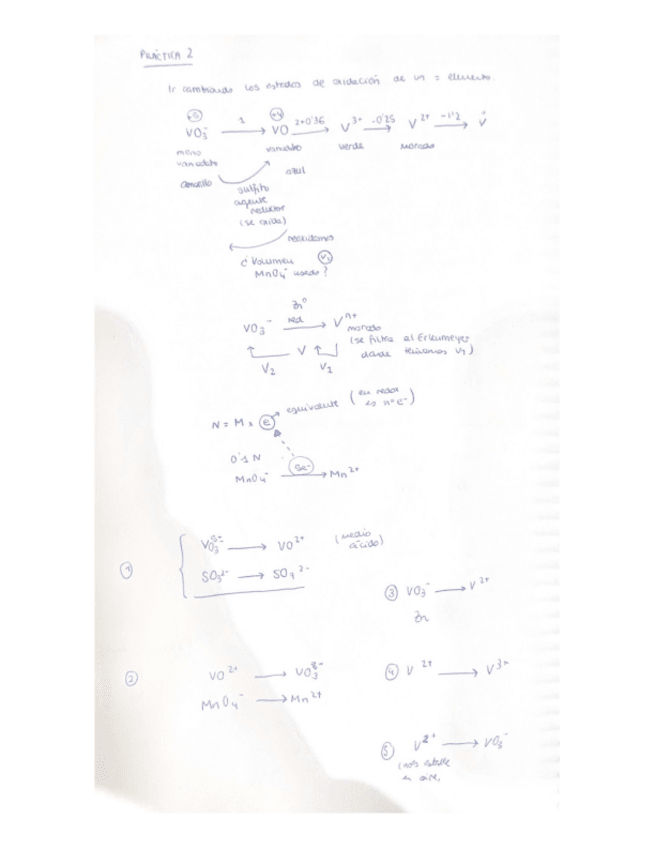 PRÁCTICA 2
Ir cambiando los estados de oxidación de un = elemento.
+5 +4
VO₃⁻ 1 → VO 2+ 0'36 → V³⁺ -0'25 → V²⁺ -1'2 → V⁰
vanadato vanadilo verde morado
amarillo azul
sulfito
agente
reductor
(se oxida)
reoxidamos
¿Volumen V₁
MnO₄⁻ usado?
Zn⁰
VO₃⁻ red → Vⁿ⁺
morado
(se filtra al Erlenmeyer
donde teníamos V₁)
V
V₂ V₁
N = M x e → equivalente (en redox
es nº e⁻)
0'1 N
5e⁻
MnO₄⁻ → Mn²⁺
① VO₃⁻ → VO²⁺ (medio
ácido)
SO₃²⁻ → SO₄²⁻
③ VO₃⁻ → V²⁺
Zn
② VO²⁺ → VO₃⁻
MnO₄⁻ → Mn²⁺
④ V²⁺ → V³⁺
⑤ V²⁺ → VO₃⁻
(más estable
en aire)